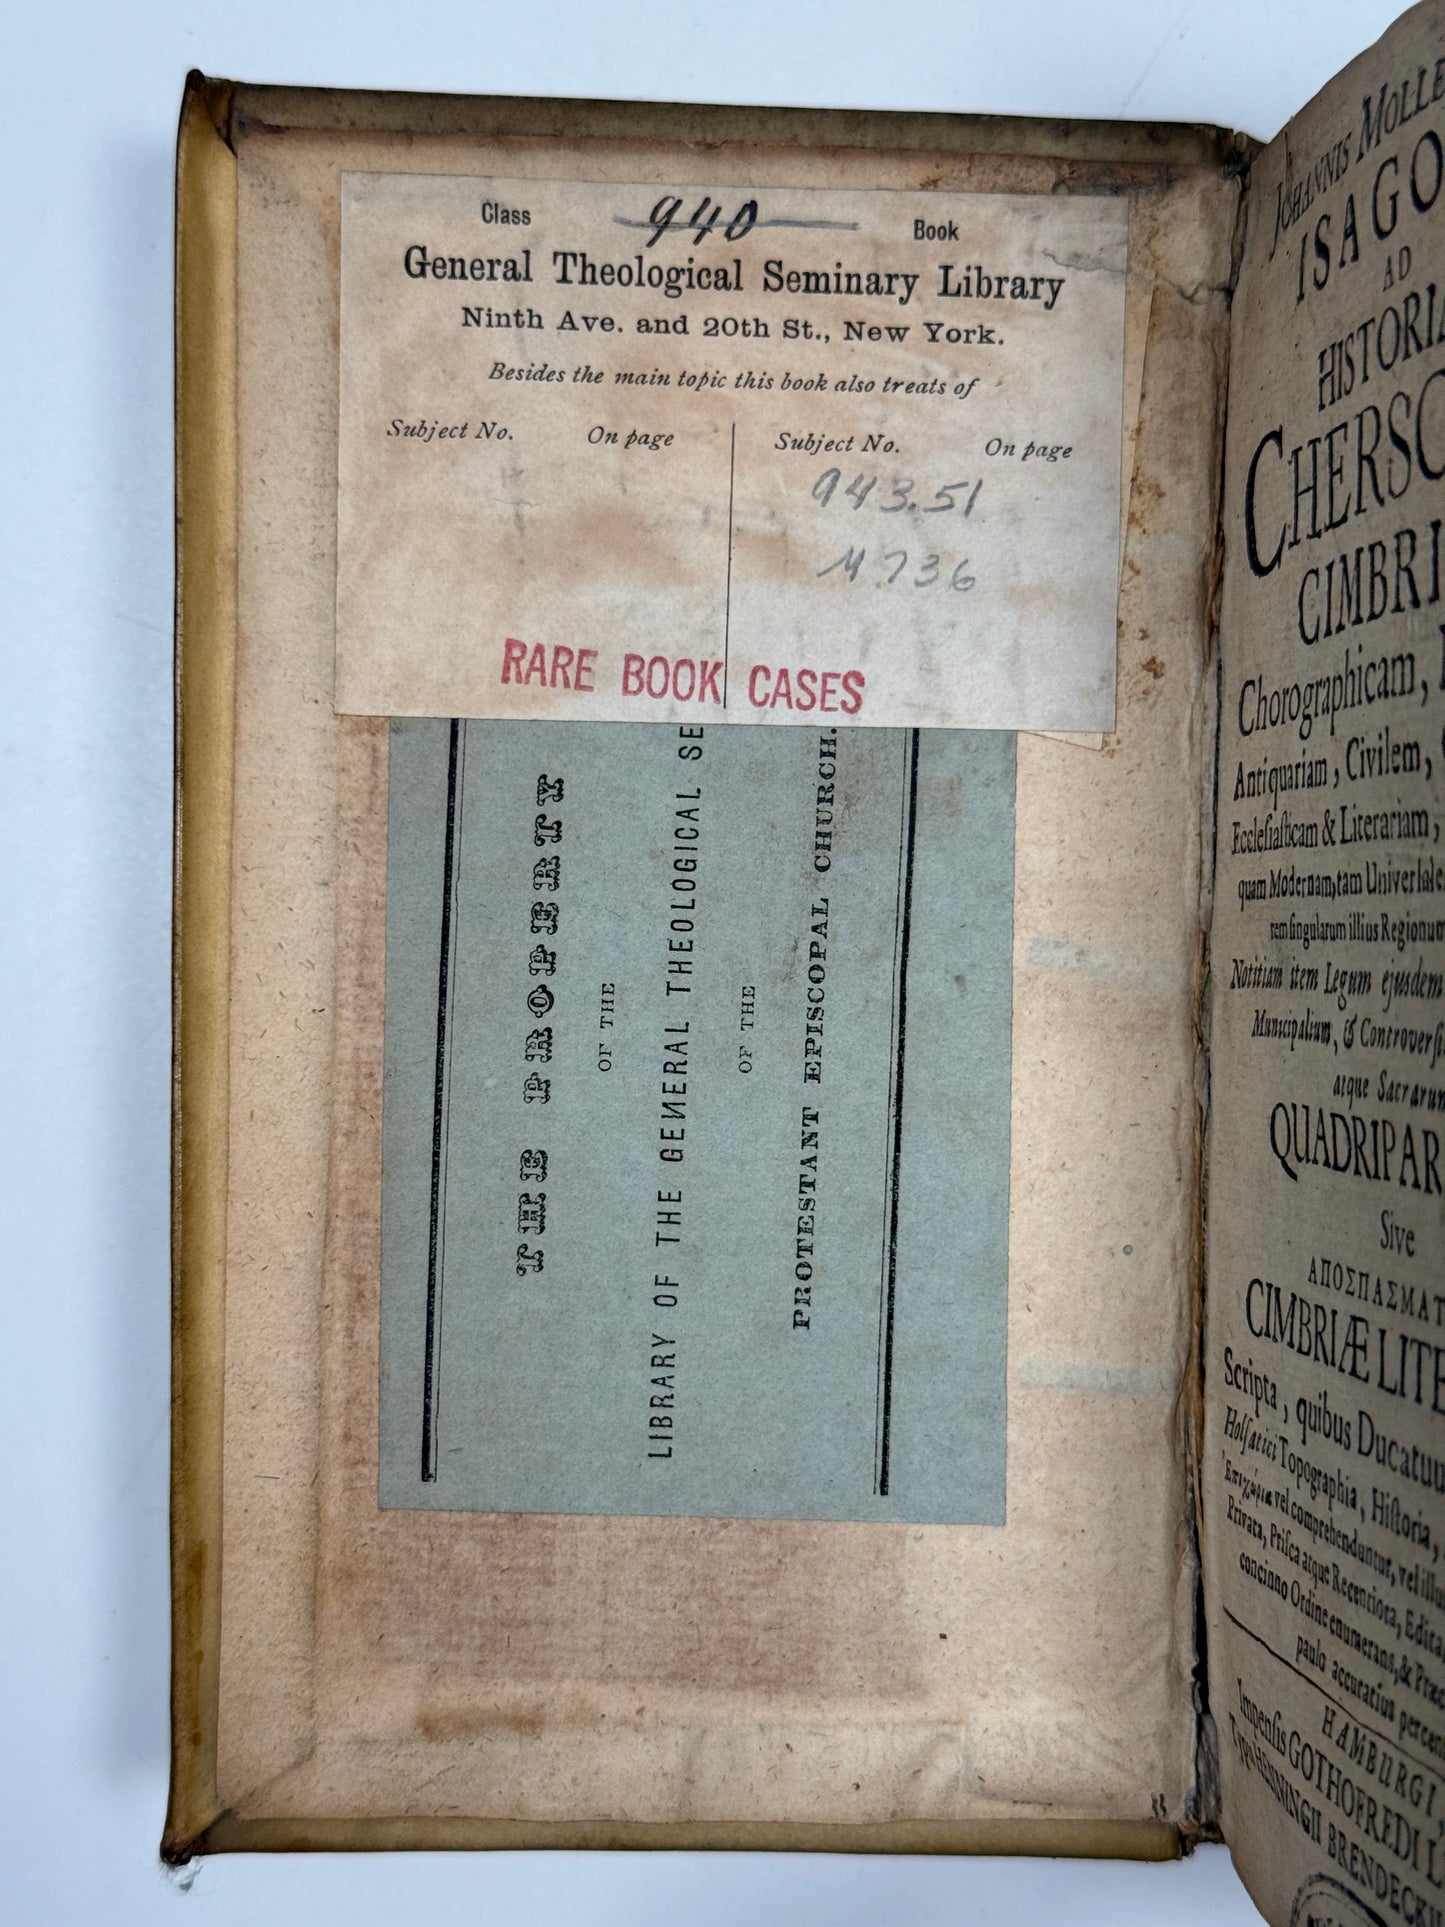 Class 940 Book
General Theological Seminary Library
Ninth Ave. and 20th St., New York.
Besides the main topic this book also treats of
Subject No. On page Subject No. On page
943.51
M736
RARE BOOK CASES
THE PROPERTY
OF THE
LIBRARY OF THE GENERAL THEOLOGICAL SE
OF THE
PROTESTANT EPISCOPAL CHURCH.
JOHANNIS MOLLE
ISAGO
AD
HISTORIA
CHERSO
CIMBRI
Chorographicam,
Antiquariam, Civilem,
Ecclesiasticam & Literariam,
quam Modernam, tam Universale
rem singularum illius Regionum
Notitiam item Legum ejusdem
Municipalium, & Controversi
atque Sacrarum
QUADRIPAR
Sive
ΑΠΟΣΠΑΣΜΑΤ
CIMBRIÆ LITE
Scripta, quibus Ducatuu
Holsatici Topographia, Historia,
Ἐπιχώρια vel comprehenduntur, vel illu
Privata, Prisca atque Recentiora, Edita,
concinno Ordine enumerans, & Præc
paulo accuratius percen
HAMBURGI,
Impensis GOTHOFREDI L
Typis HENNINGII BRENDECKI